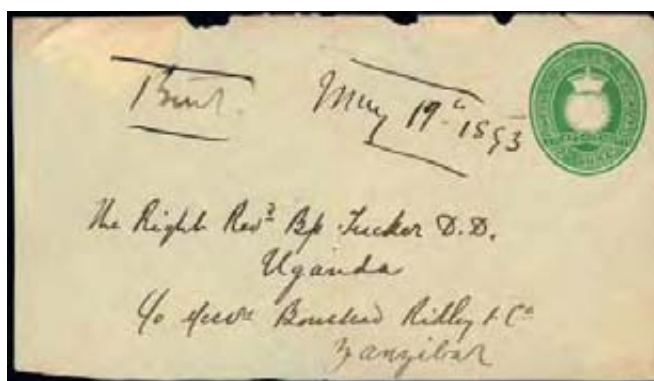 May 19th 1893
The Right Revd Bp Tucker D.D.
Uganda
c/o Messrs Boustead Ridley & Co
Zanzibar